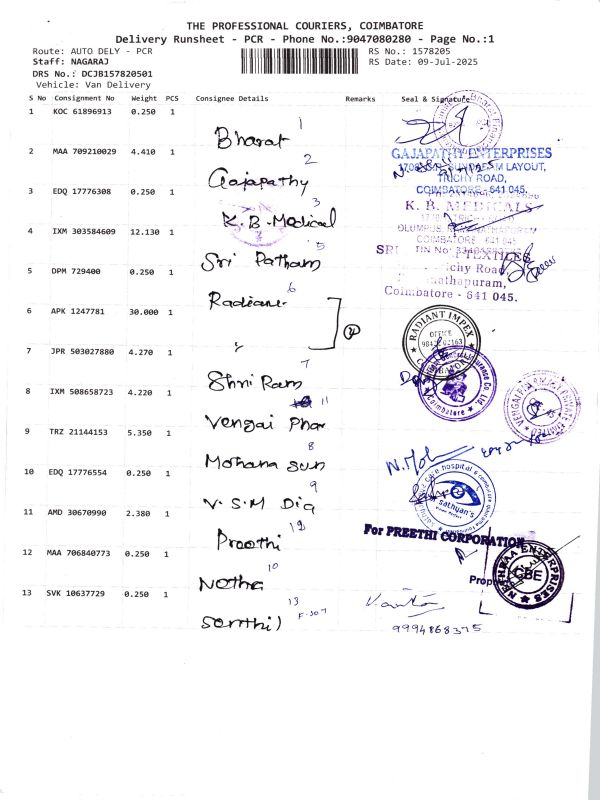 THE PROFESSIONAL COURIERS, COIMBATORE
Delivery Runsheet - PCR - Phone No.:9047080280 - Page No.:1
Route: AUTO DELY - PCR RS No.: 1578205
Staff: NAGARAJ RS Date: 09-Jul-2025
DRS No.: DCJB157820501
Vehicle: Van Delivery
S No Consignment No Weight PCS Consignee Details Remarks Seal & Signature
1 KOC 61896913 0.250 1 Bharat 1
2 MAA 709210029 4.410 1 Gajapathy 2
GAJAPATHY ENTERPRISES
LAYOUT,
TRICHY ROAD,
COIMBATORE - 641 045.
3 EDQ 17776308 0.250 1 K.B. Medical 3
K. B. MEDICALS
COIMBATORE 641 045
4 IXM 303584609 12.130 1 Sri Patham 5
SRI TEXTILES
ichy Road,
athapuram,
Coimbatore - 641 045.
5 DPM 729400 0.250 1 Radiane 6
6 APK 1247781 30.000 1 〃 2
RADIANT IMPEX
OFFICE
COIMBATORE
7 JPR 503027880 4.270 1 Shri Ram 7
Coimbatore
8 IXM 508658723 4.220 1 Vengai Phar 11
9 TRZ 21144153 5.350 1 Mohana Sun 8
10 EDQ 17776554 0.250 1 V.S.M Dia 9
eye care hospital
sathyan's
11 AMD 30670990 2.380 1 Preethi 12
For PREETHI CORPORATION
12 MAA 706840773 0.250 1 Nethra 10
NETHRAA ENTERPRISES
GBE
13 SVK 10637729 0.250 1 13
F-307
9994868375